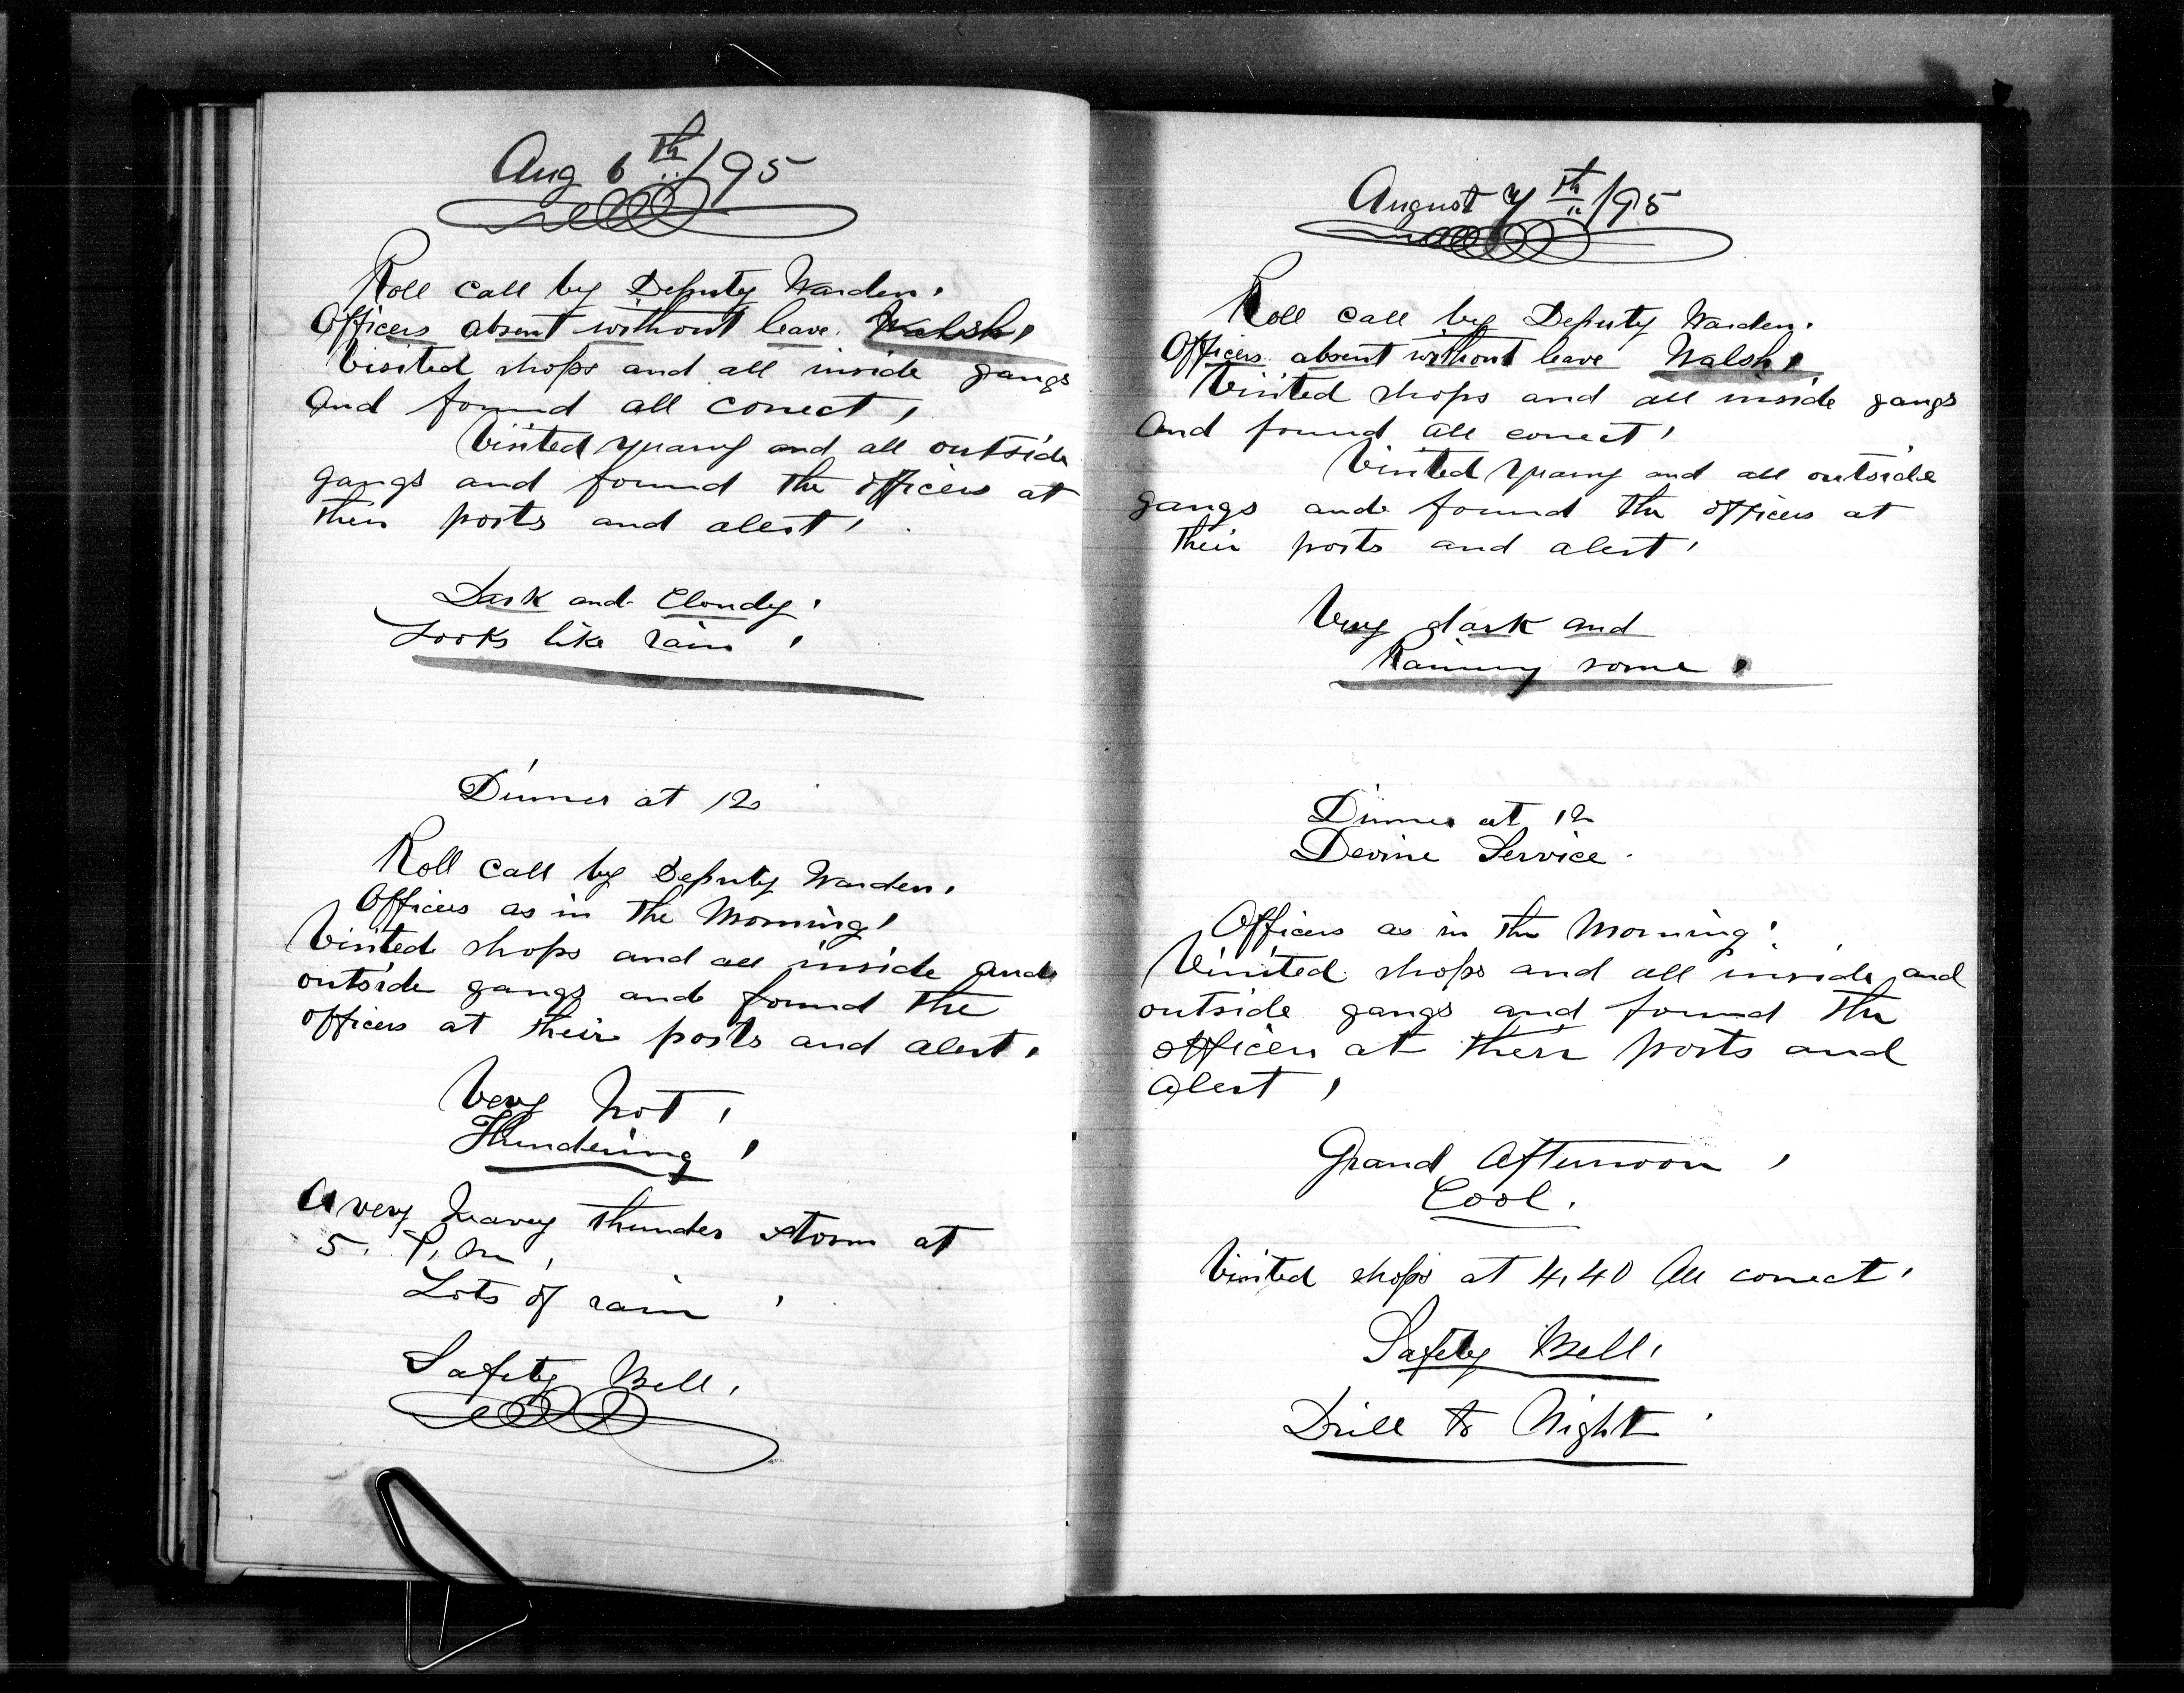 Aug 6th/95
Roll call by Deputy Warden.
Officers absent without leave. Walsh.
Visited shops and all inside gangs
and found all correct.
Visited quarry and all outside
gangs and found the officers at
their posts and alert.
Dark and Cloudy.
Looks like rain.
Dinner at 12
Roll call by Deputy Warden.
Officers as in the Morning.
Visited shops and all inside and
outside gangs and found the
officers at their posts and alert.
Very hot.
Thundering.
A very heavy thunder storm at
5. P.M.
Lots of rain.
Safety Bell.
August 7th/95
Roll call by Deputy Warden.
Officers absent without leave Walsh.
Visited shops and all inside gangs
and found all correct.
Visited quarry and all outside
gangs and found the officers at
their posts and alert.
Very dark and
Rainny some.
Dinner at 12
Devine Service.
Officers as in the Morning.
Visited shops and all inside and
outside gangs and found the
officers at their posts and
alert.
Grand Afternoon.
Cool.
Visited shops at 4.40 All correct.
Safety Bell.
Drill to Night.